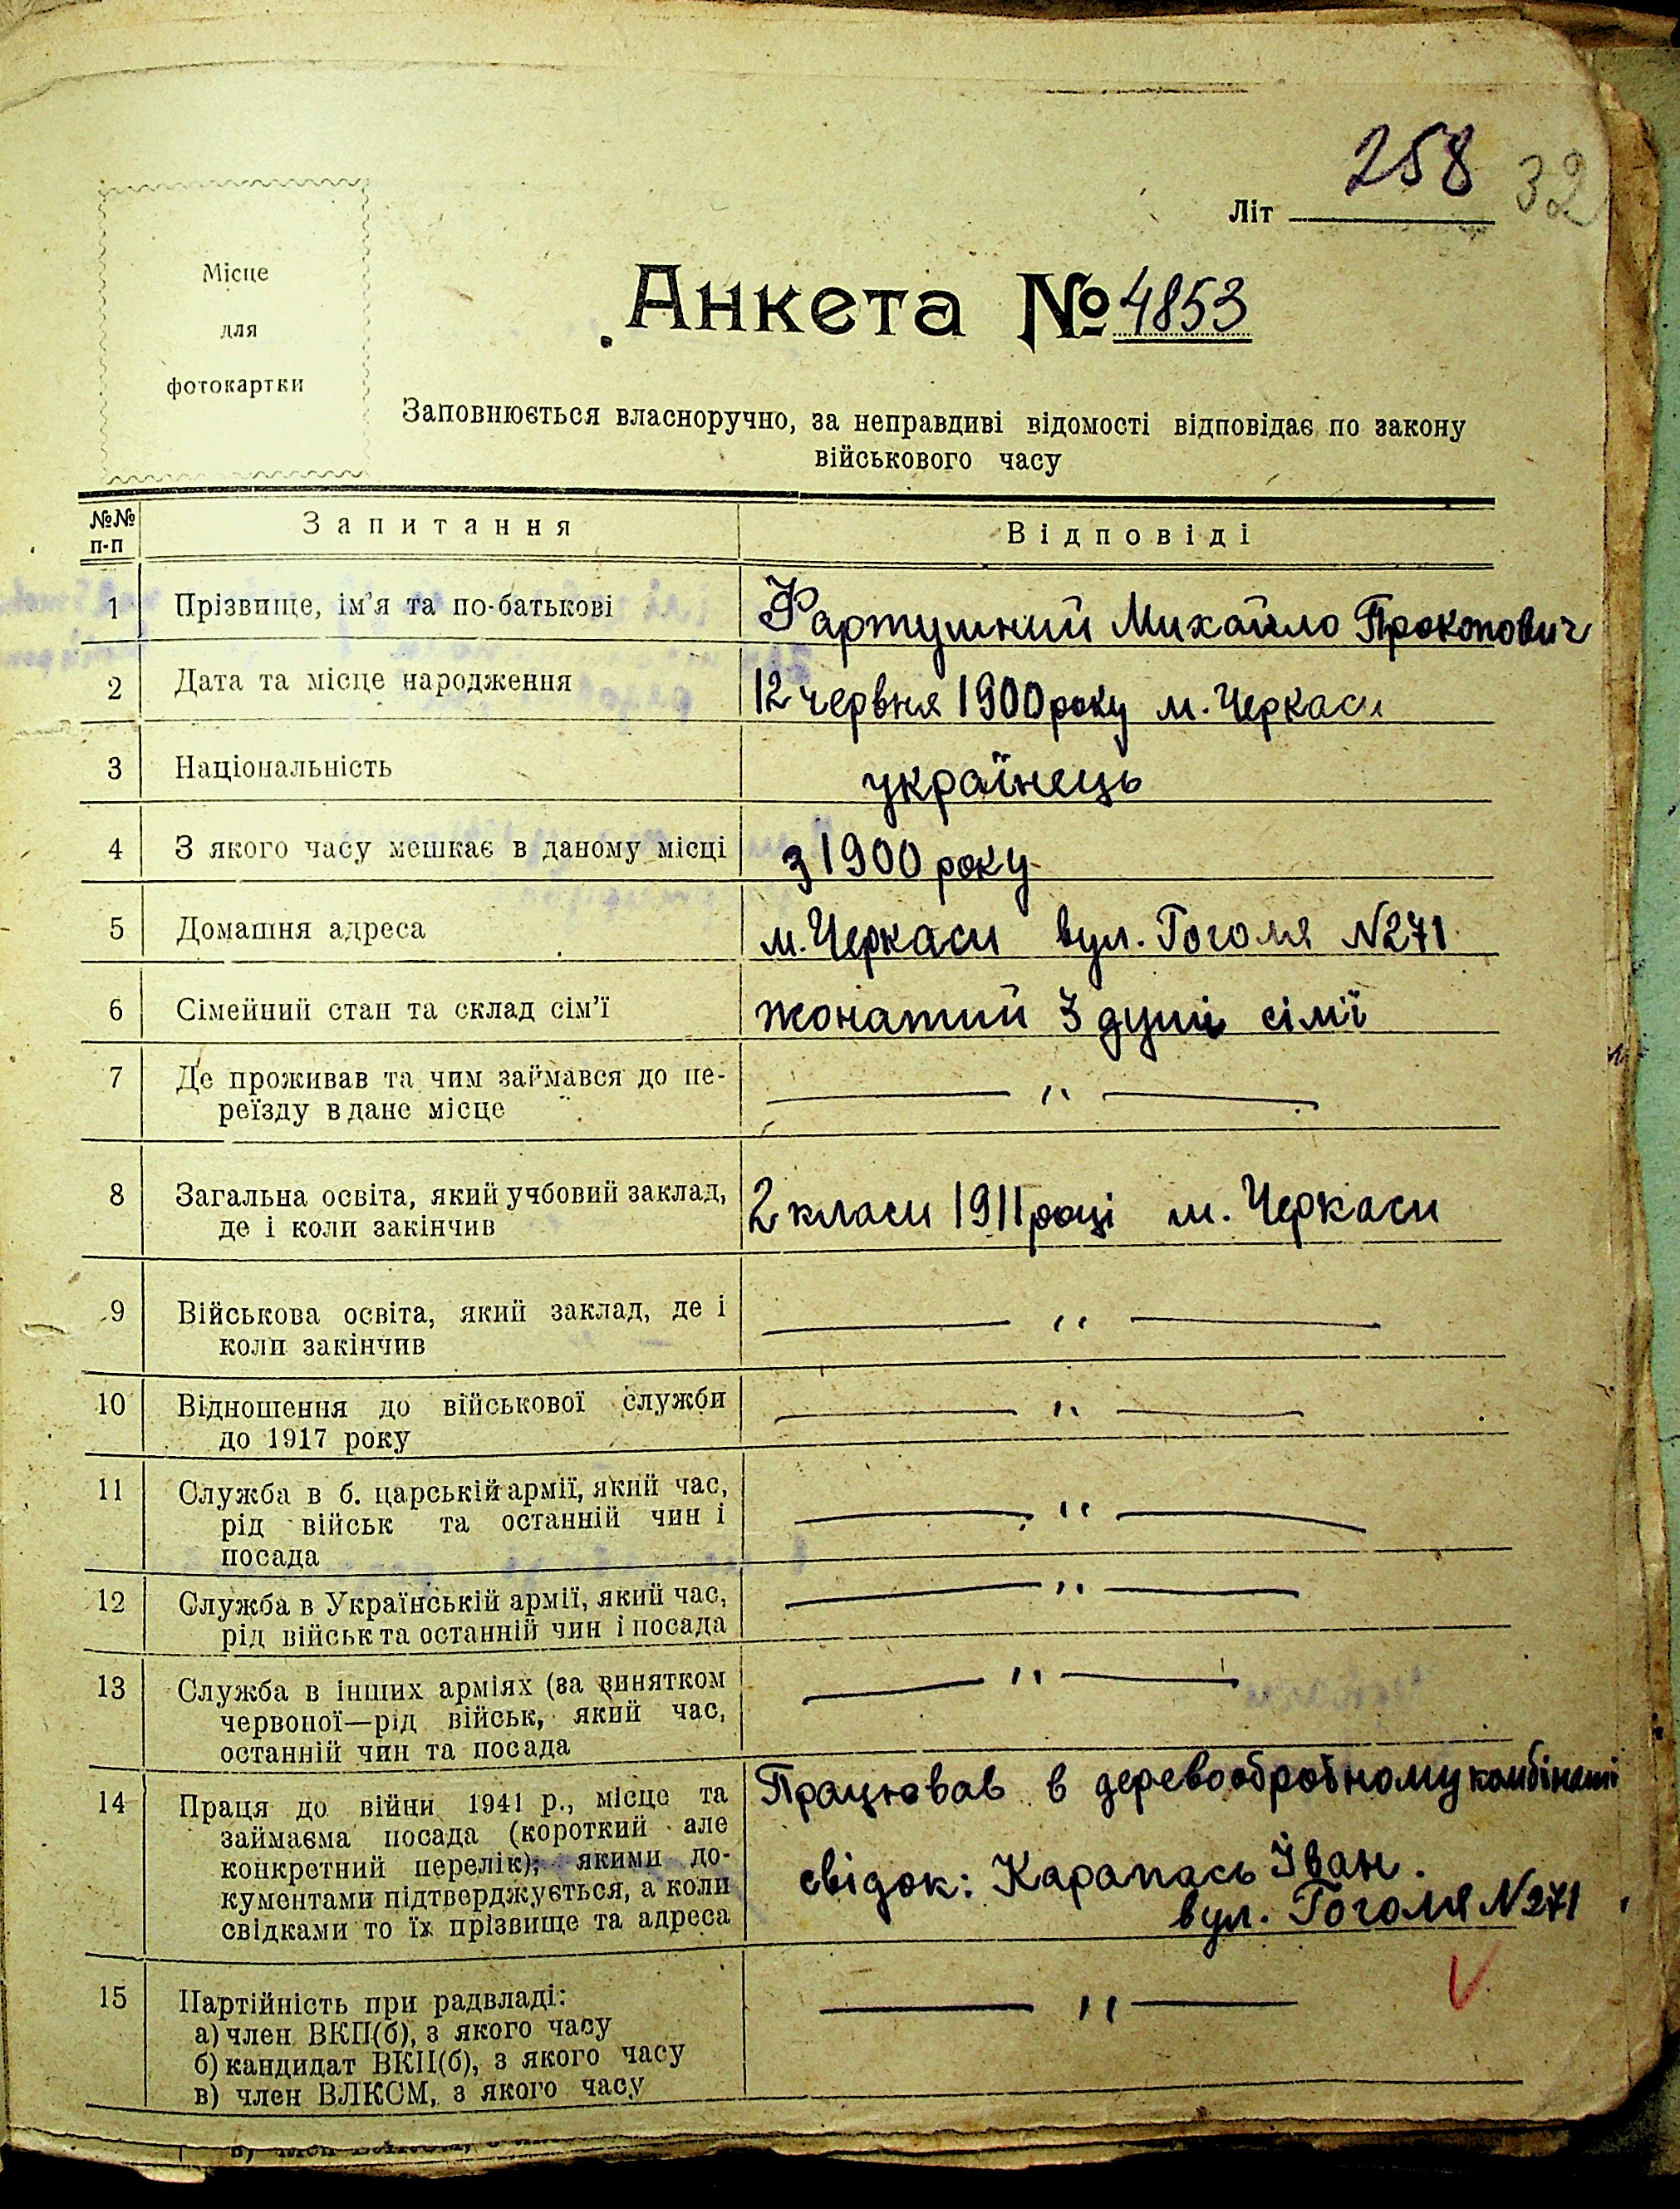 258 32
Літ
Місце
для
фотокартки
Анкета № 4853
Заповнюється власноручно, за неправдиві відомості відповідає по закону
військового часу
№№ п-п Запитання Відповіді
1 Прізвище, ім'я та по-батькові Фартушний Михайло Прокопович
2 Дата та місце народження 12 червня 1900 року м. Черкаси
3 Національність українець
4 З якого часу мешкає в даному місці з 1900 року
5 Домашня адреса м. Черкаси вул. Гоголя N271
6 Сімейний стан та склад сім'ї жонатий 3 душі сімї
7 Де проживав та чим займався до пе- — " —
реїзду в дане місце
8 Загальна освіта, який учбовий заклад, 2 класи 1911 році м. Черкаси
де і коли закінчив
9 Військова освіта, який заклад, де і — " —
коли закінчив
10 Відношення до військової служби — " —
до 1917 року
11 Служба в б. царській армії, який час, — " —
рід військ та останній чин і
посада
12 Служба в Українській армії, який час, — " —
рід військ та останній чин і посада
13 Служба в інших арміях (за винятком — " —
червоної—рід військ, який час,
останній чин та посада
14 Праця до війни 1941 р., місце та Працював в деревообробному комбінаті
займаєма посада (короткий але
конкретний перелік); якими до- свідок: Карапась Іван.
кументами підтверджується, а коли вул. Гоголя N271
свідками то їх прізвище та адреса
15 Партійність при радвладі: — " —
а) член ВКП(б), з якого часу
б) кандидат ВКП(б), з якого часу
в) член ВЛКСМ, з якого часу